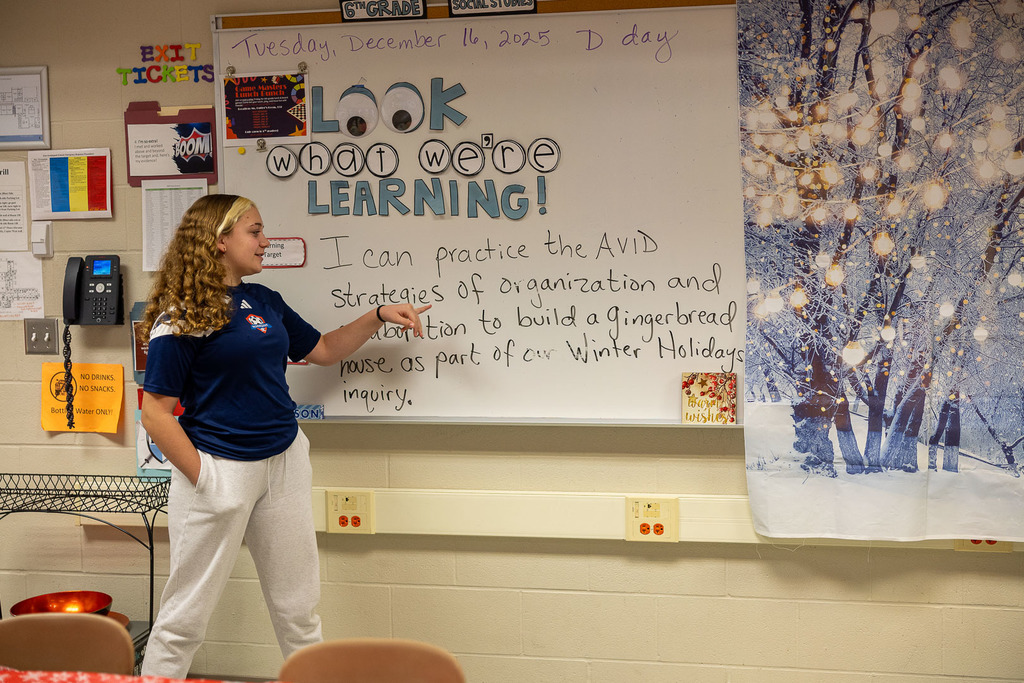 6TH GRADE
SOCIAL STUDIES
Tuesday, December 16, 2025 D day
EXIT
TICKETS
Game Masters
Lunch Bunch
BOOM!
LOOK
what we're
LEARNING!
Target
I can practice the AVID
strategies of organization and
to build a gingerbread
house as part of our Winter Holidays
inquiry.
NO DRINKS.
NO SNACKS.
Water ONLY!
Warm
wishes